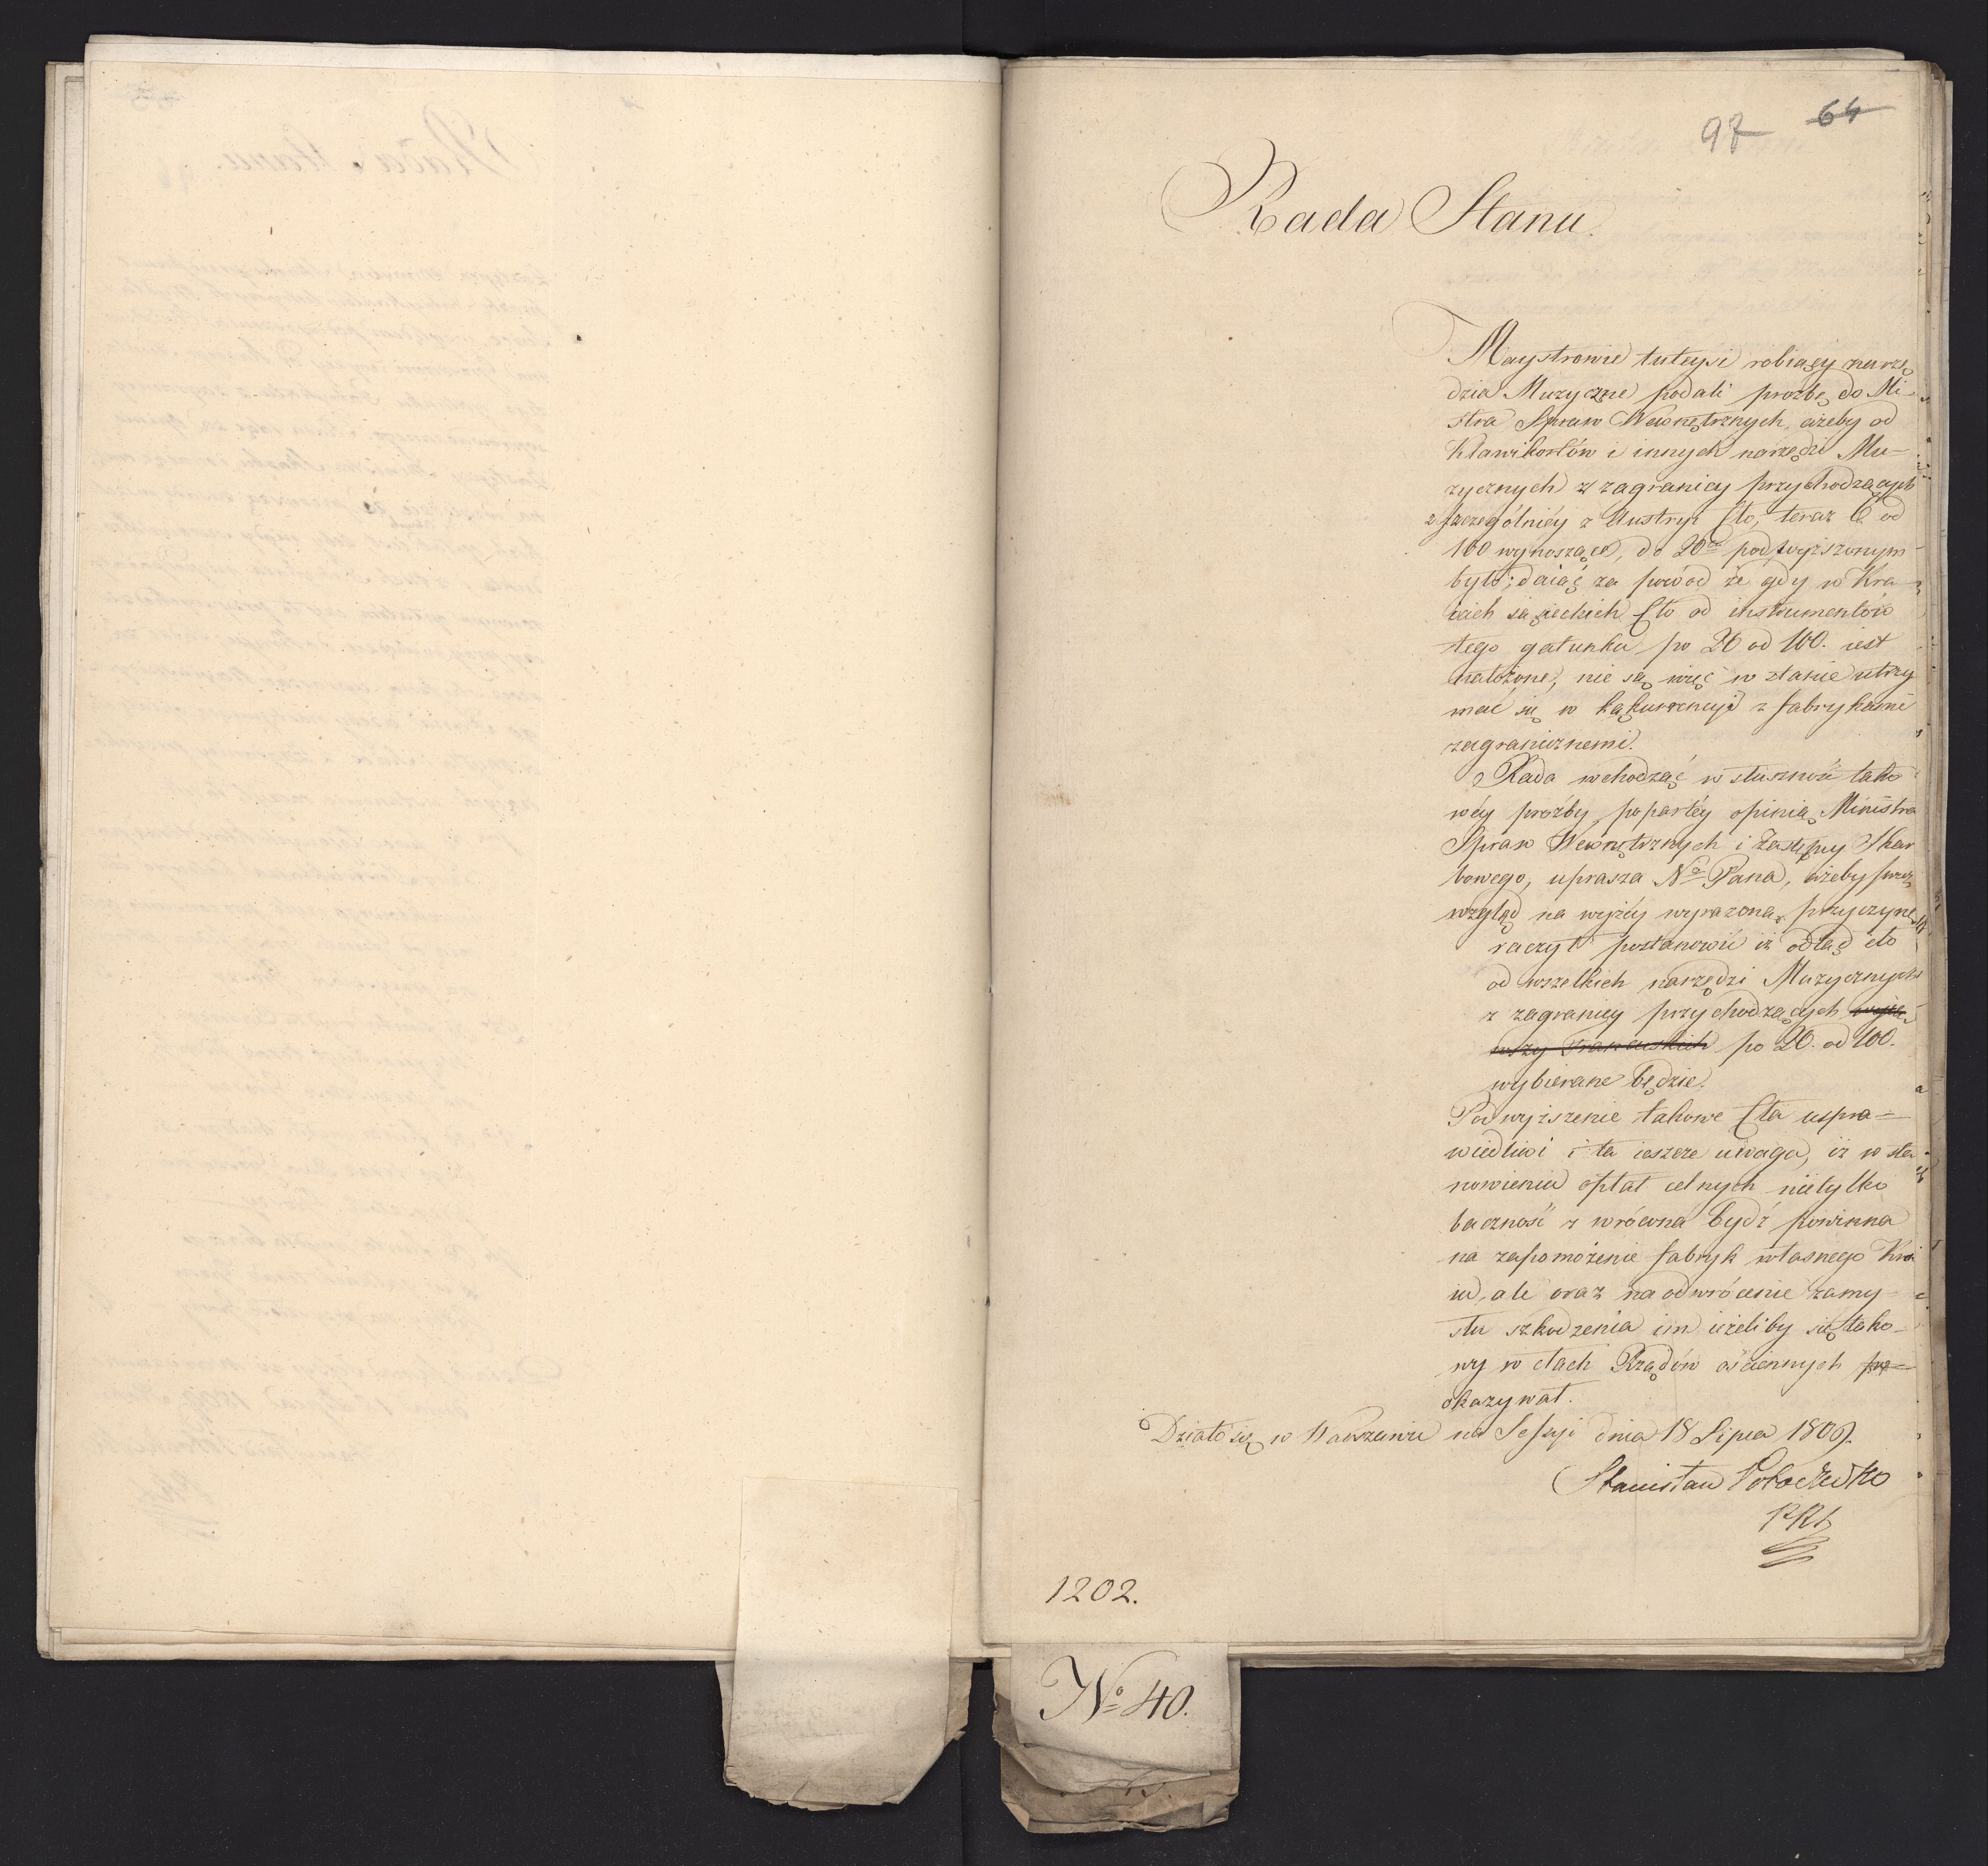 97 64
Rada Stanu.
Maystrowie tuteysi robiący narzę
dzia Muzyczne podali prozbę do Mi-
stra Spraw Wewnętrznych, ażeby od
Klawikortów i innych narzędzi Mu=
zycznych z zagranicy przychodzących
szczególniéy z Austryi Cło, teraz 6 od
100 wynoszące, do 20 podwyższonym
było; daiąc za powód że gdy w Kra-
iach sąsieckich Cło od instrumentów
tego gatunku po 20 od 100. iest
nałożone, nie są więc w stanie utrzy
mać się w kąkurencyi z fabrykami
zagranicznemi.
Rada wchodząc w słuszność tako
wéy prozby, popartéy opinią Ministra
Spraw Wewnętrznych i Zastępcy Skar
bowego, uprasza Nº Pana, ażeby przez
wzgląd na wyżéy wyrażoną przyczynę
raczył postanowić iż odtąd cło
od wszelkich narzędzi Muzycznych
z zagranicy przychodzących wyią-
wszy Francuskich po 20. od 100.
wybierane będzie.
Podwyższenie takowe Cła uspra=
wiedliwi i ta ieszcze uwaga, iż w sta
nowieniu opłat celnych nietylko
baczność zwrócona bydź powinna
na zapomożenie fabryk własnego Kra
iu, ale oraz na odwrócenie zamy=
słu szkodzenia im ieżeliby się tako-
wy w cłach Rządów ościennych
okazywał.
Działo się w Warszawie na Sessyi dnia 18 Lipca 1809.
Stanisław Potocki
1202.
Nº 40.